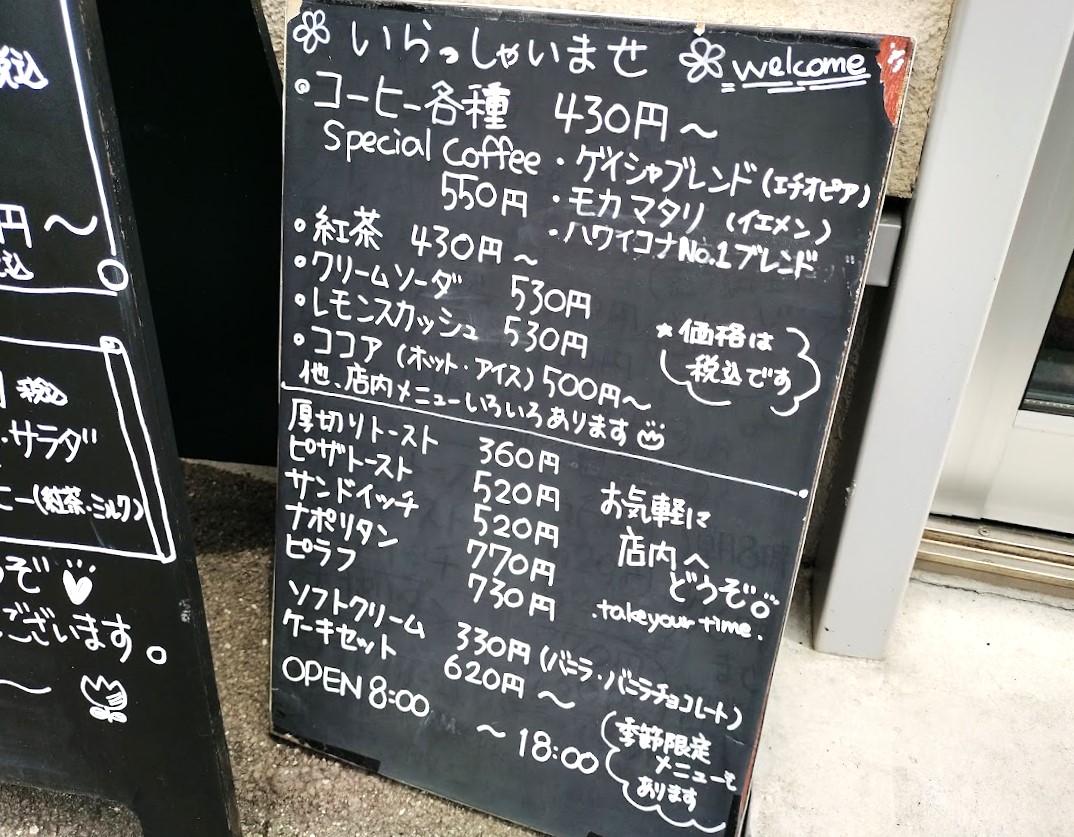 税込
円～
税込
税込
・サラダ
ヒー(紅茶・ミルク)
うぞ
ございます。
～
いらっしゃいませ welcome
・コーヒー各種 430円～
Special Coffee ・ゲイシャブレンド(エチオピア)
550円 ・モカマタリ (イエメン)
・ハワイコナNo.1ブレンド
・紅茶 430円～
・クリームソーダ 530円
・レモンスカッシュ 530円
・ココア (ホット・アイス) 500円～
★価格は
税込です
他、店内メニューいろいろあります
厚切りトースト 360円
ピザトースト 520円
サンドイッチ 520円
ナポリタン 770円
ピラフ 730円
お気軽に
店内へ
どうぞ
.take your time.
ソフトクリーム 330円 (バニラ・バニラチョコレート)
ケーキセット 620円～
OPEN 8:00
～18:00
季節限定
メニューも
あります